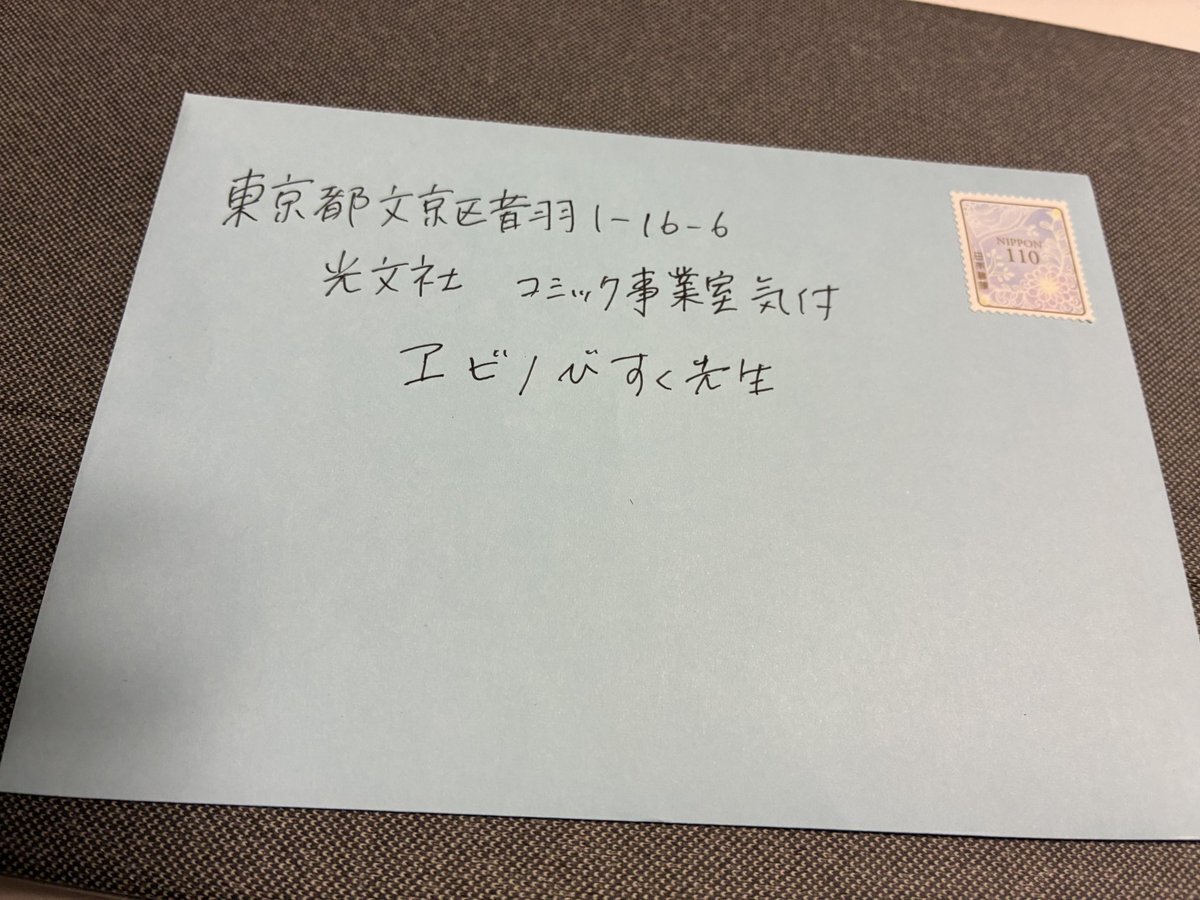 東京都文京区音羽1-16-6
光文社 コミック事業室気付
エビノびすく先生
NIPPON
110
日本郵便